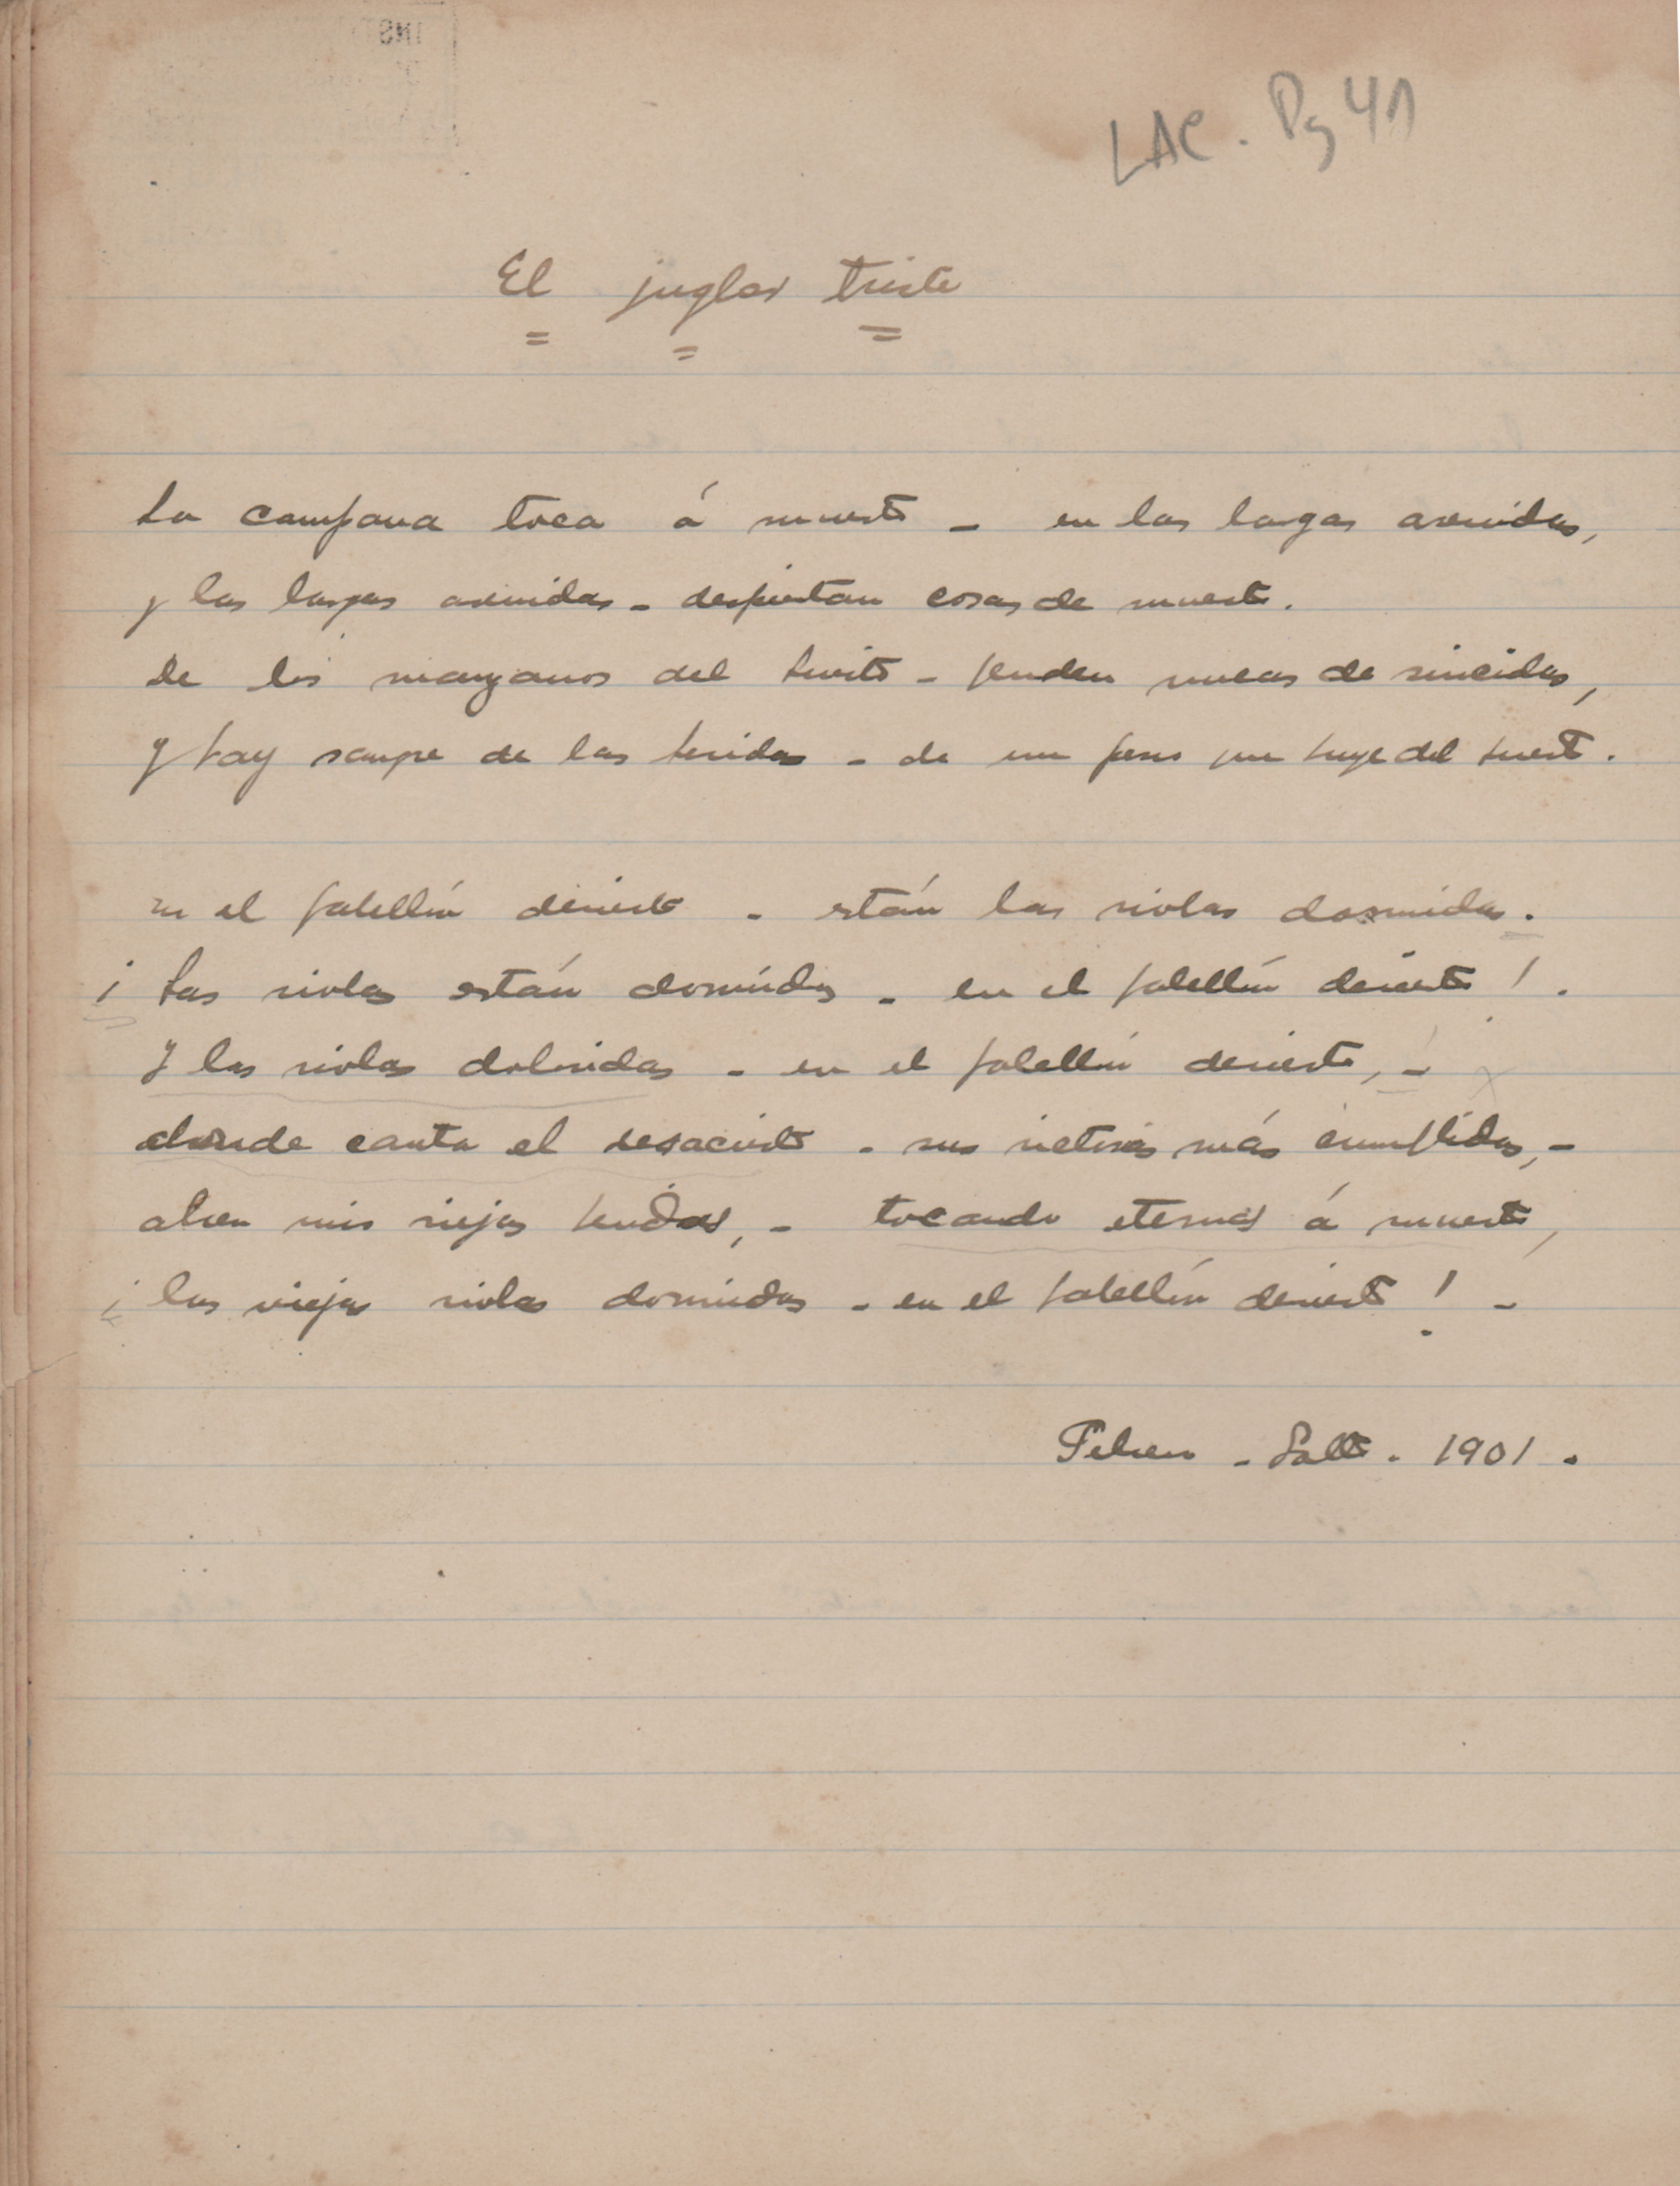 LAC. Pg 41
El juglar triste
La campana toca á muerto - en las largas avenidas,
y las largas avenidas - despiertan cosas de muerto.
De los manzanos del huerto - penden nucas de suicidas,
y hay sangre de las heridas - de un perro que huye del huerto.
En el pabellón desierto - están las violas dormidas.
¡Las violas están dormidas - en el pabellón desierto!.
Y las violas doloridas - en el pabellón desierto, -
donde canta el desacierto - sus victorias más cumplidas, -
abren mis viejas heridas, - tocando eternas á muerto,
¡las viejas violas dormidas - en el pabellón desierto! -
Febrero - Salto. 1901.